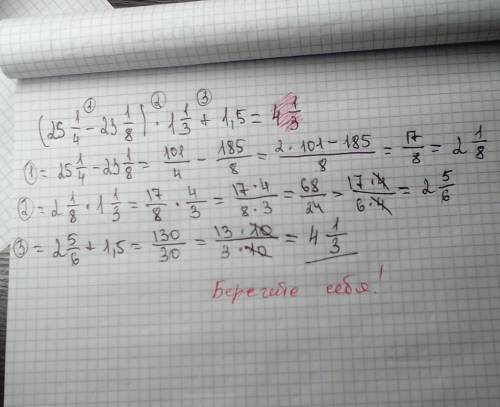 ① ② ③
(25 1/4 - 23 1/8) · 1 1/3 + 1,5 = 4 1/3
① = 25 1/4 - 23 1/8 = 101/4 - 185/8 = (2 · 101 - 185)/8 = 17/8 = 2 1/8
② = 2 1/8 · 1 1/3 = 17/8 · 4/3 = (17 · 4)/(8 · 3) = 68/24 = (17 · 4)/(6 · 4) = 2 5/6
③ = 2 5/6 + 1,5 = 130/30 = (13 · 10)/(3 · 10) = 4 1/3
Берегите себя!